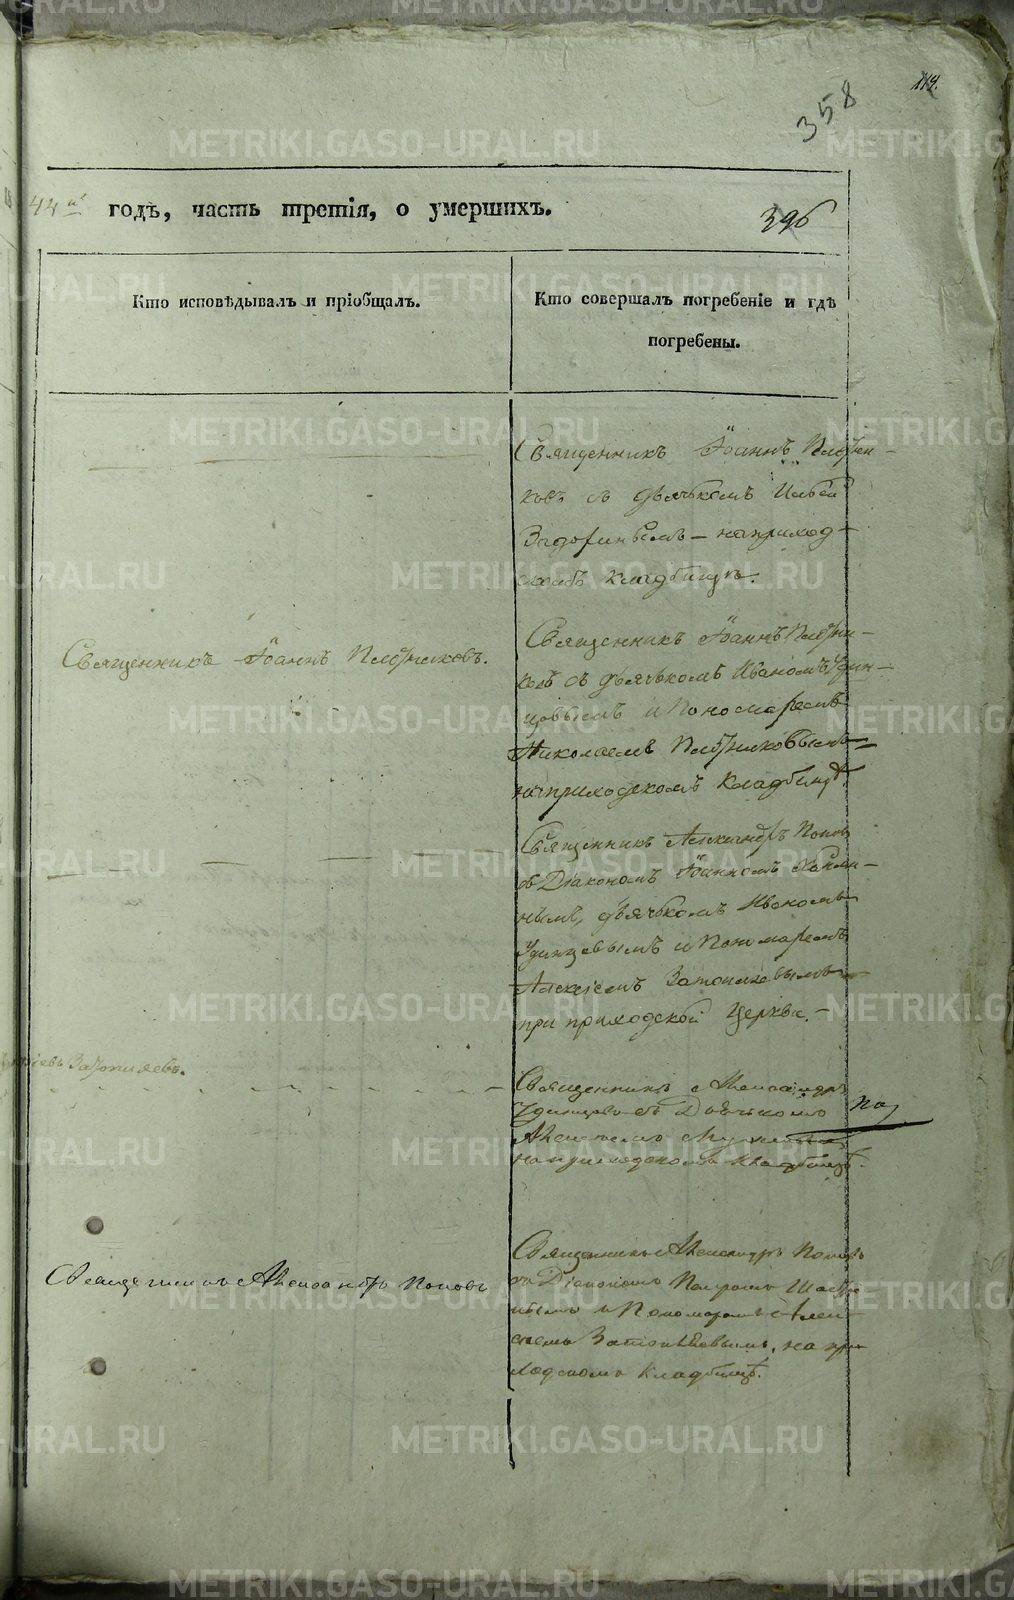 114.
358
44го годѣ, часть третія, о умершихъ.
396
Кто исповѣдывалъ и пріобщалъ.
Кто совершалъ погребеніе и гдѣ
погребены.
Священникъ Іоаннъ Плотни-
ковъ съ дьячкомъ Ильей
Задоринымъ – на приход-
скомъ кладбищѣ.
Священникъ Іоаннъ Плотниковъ.
Священникъ Іоаннъ Плотни-
ковъ съ дьячкомъ Иваномъ Удин-
цовымъ и Пономаремъ
Николаемъ Плотниковымъ
на приходскомъ кладбищѣ.
Священникъ Александръ Поповъ
съ Діакономъ Іоанномъ
нымъ, дьячкомъ Иваномъ
Удинцевымъ и Пономаремъ
Алексіемъ Затопляевымъ
при приходской Церкви. –
Затопляевъ.
Священникъ Александръ По
Удинцовъ съ Дьячкомъ
Алексіемъ
на приходскомъ кладбищѣ.
Священникъ Александръ Поповъ
Священникъ Александръ Поповъ
съ Діакономъ Петромъ
и Пономаремъ Алек-
сіемъ Затопляевымъ, на при-
ходскомъ кладбищѣ.
METRIKI.GASO-URAL.RU